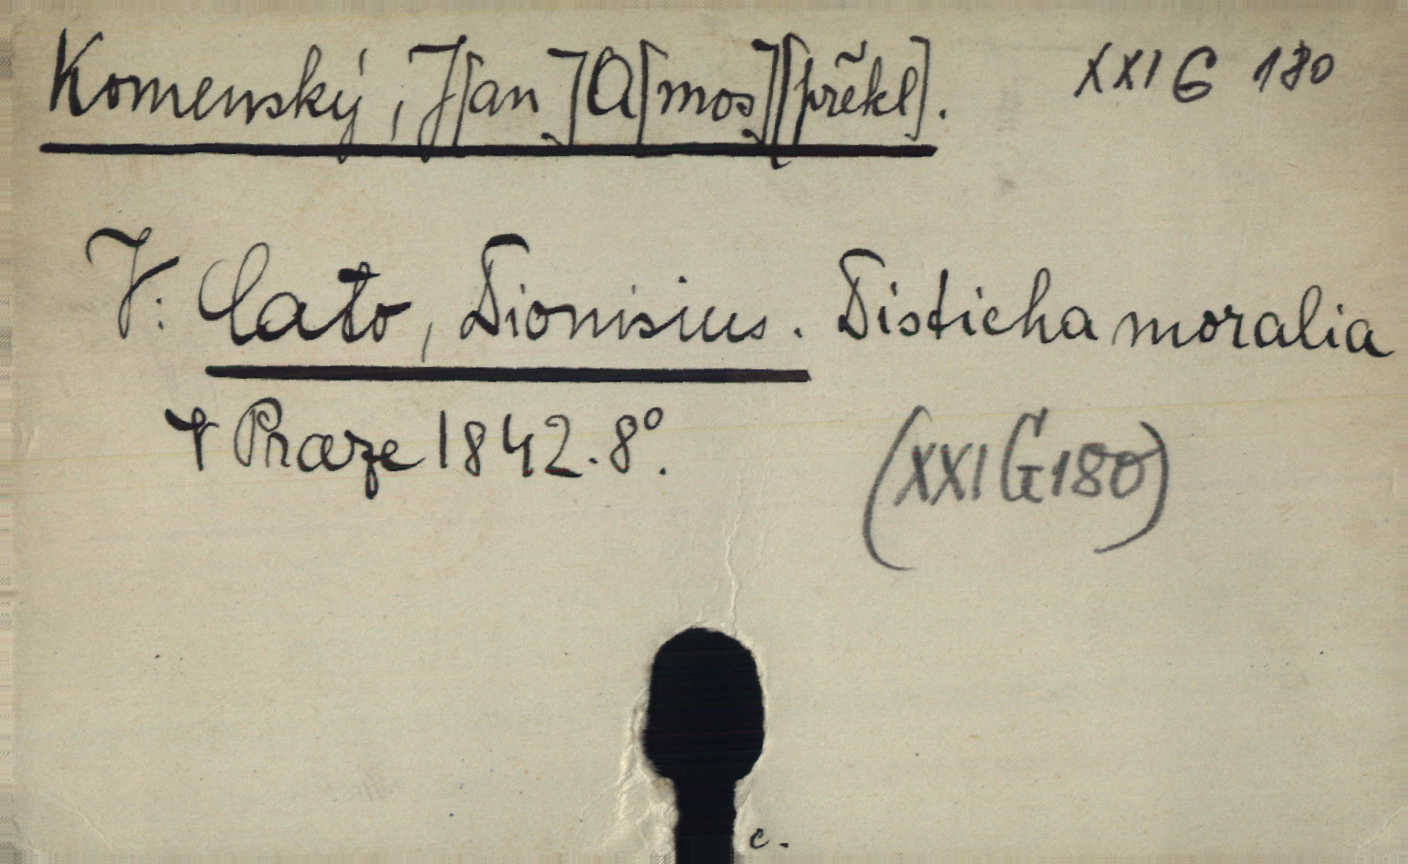 Komenský, J[an] A[mos] [překl]. XXI G 180
V: Cato, Dionisius. Disticha moralia
V Praze 1842. 8°.
(XXI G 180)
c.